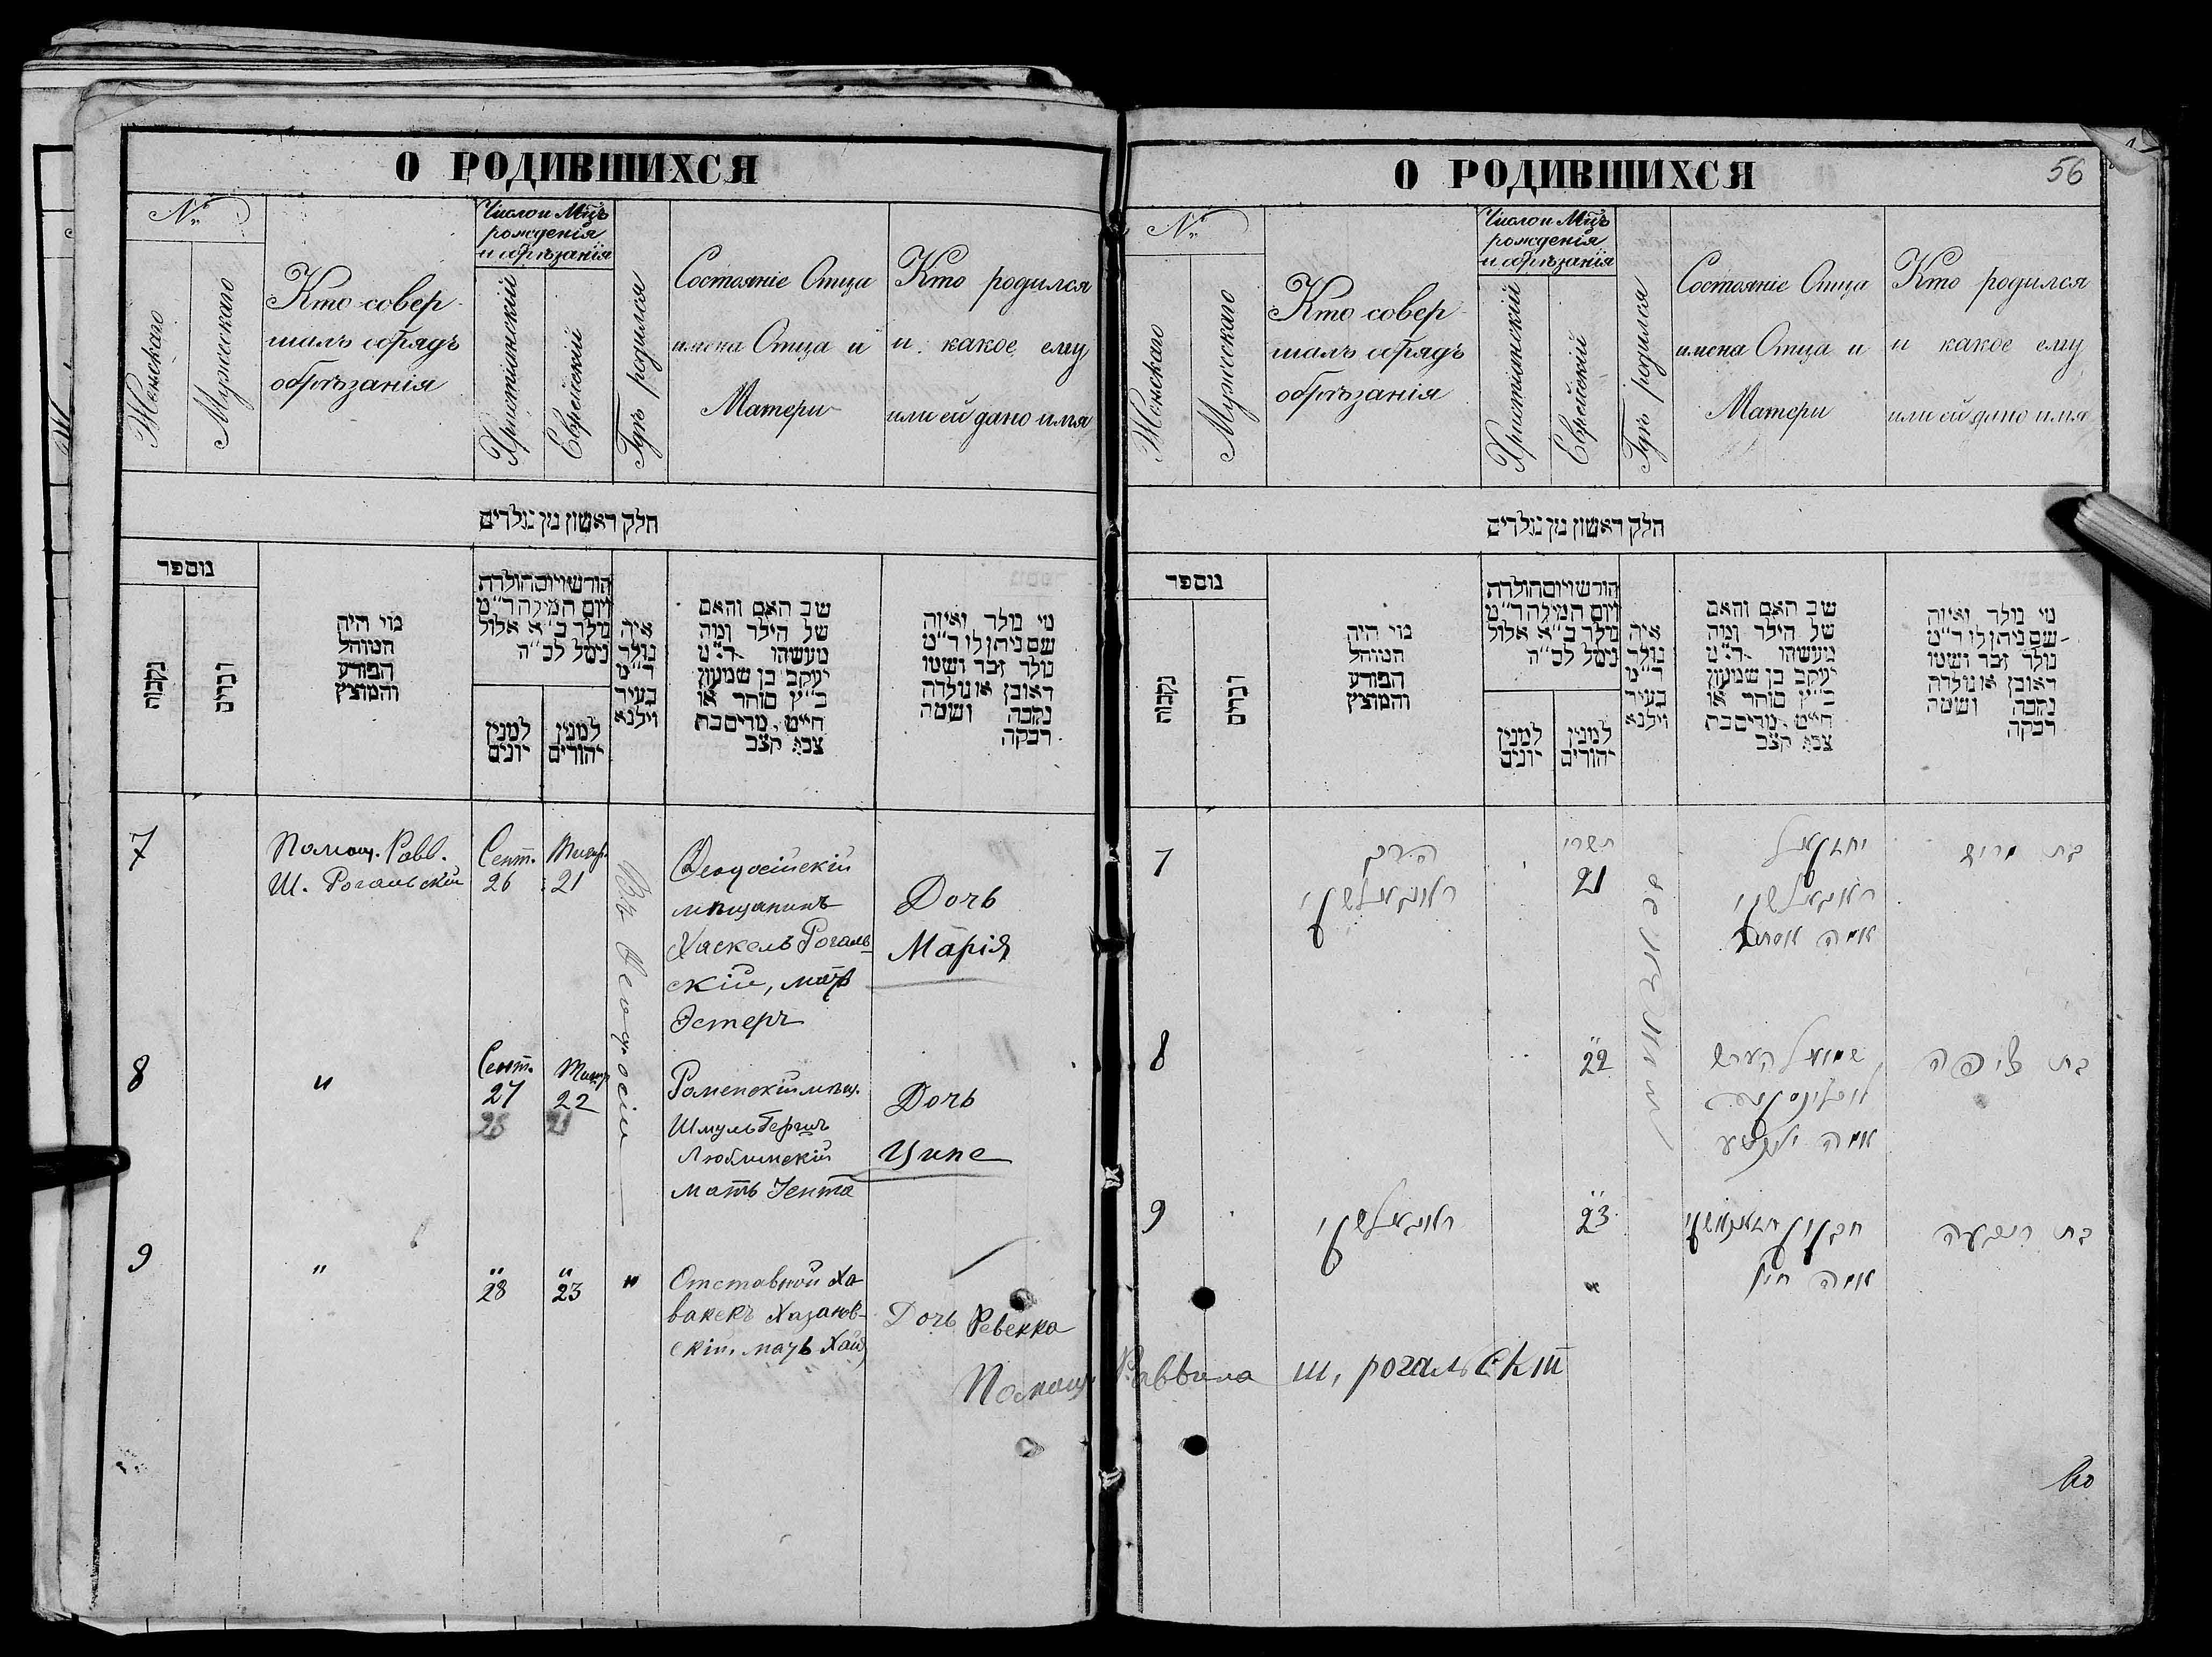 О РОДИВШИХСЯ
№
Женскаго
Мужескаго
Кто совер-
шалъ обрядъ
обрѣзанія
Число и Мѣцъ
рожденія
и обрѣзанія
Христіанскій
Еврейскій
Гдѣ родился
Состояніе Отца
имена Отца и
Матери
Кто родился
и какое ему
или ей дано имя
חלק ראשון מן נולדים
מספר
נקבות
זכרים
מי היה
המוהל
הפורע
והמוצץ
חודש ויום הולדת
ויום המילה ד״מ
נולד ב״א אלול
נימל לכ״ה
למנין
יונים
למנין
יהודים
איה
נולד
ד״מ
בעיר
וילנא
שב האם והאם
של הילד ומה
מעשהו ד״מ
יעקב בן שמעון
כ״ץ סוחר או
חייט, מרים בת
צבי קצב
מי נולד ואיזה
שם ניתן לו ד״מ
נולד זכר ושמו
ראובן או נולדה
נקבה ושמה
רבקה
7
Помощ. Равв.
Ш. Рогальскій
Сент.
26
21
Въ Ѳеодосіи
Ѳеодосійскій
мѣщанинъ
Хаскель Рогаль-
скій, мать
Эстеръ
Дочь
Марія
8
"
Сент.
27
22
Роменскій мѣщ.
Шмуль Гершъ
Люблинскій
мать Іента
Дочь
Ципе
9
"
"
28
"
23
"
Отставной Ха-
вакекъ Хазанов-
скій, мать Хая
Дочь Ревекка
Помощ. Раввина Ш, рогальскій
О РОДИВШИХСЯ
56
№
Женскаго
Мужескаго
Кто совер-
шалъ обрядъ
обрѣзанія
Число и Мѣцъ
рожденія
и обрѣзанія
Христіанскій
Еврейскій
Гдѣ родился
Состояніе Отца
имена Отца и
Матери
Кто родился
и какое ему
или ей дано имя
חלק ראשון מן נולדים
מספר
נקבות
זכרים
מי היה
המוהל
הפורע
והמוצץ
חודש ויום הולדת
ויום המילה ד״מ
נולד ב״א אלול
נימל לכ״ה
למנין
יונים
למנין
יהודים
איה
נולד
ד״מ
בעיר
וילנא
שב האם והאם
של הילד ומה
מעשהו ד״מ
יעקב בן שמעון
כ״ץ סוחר או
חייט, מרים בת
צבי קצב
מי נולד ואיזה
שם ניתן לו ד״מ
נולד זכר ושמו
ראובן או נולדה
נקבה ושמה
רבקה
7
הרב
ראגאלשקי
תשרי
21
יחזקאל
ראגאלשקי
אמה אסתר
בת
8
"
22
שמואל הערש
אמה יענטע
בת ציפה
9
ראגאלשקי
"
23
"
חבקוק
אמה חיה
בת